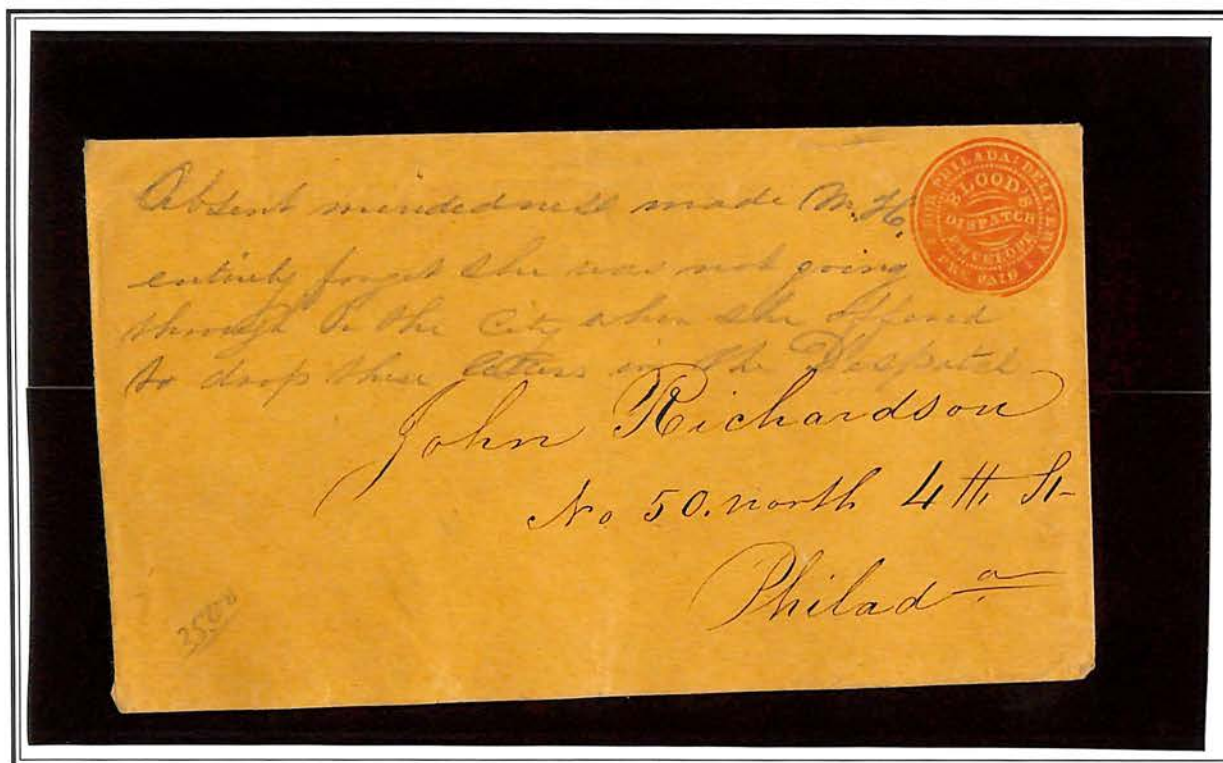 Absent mindedness made M. H.
entirely forget she was not going
through to the City when she offered
to drop these letters in the Despatch
FOR PHILADA. DELIVERY
BLOOD'S
DISPATCH
ENVELOPE
PRE-PAID
John Richardson
No 50. north 4th St-
Philada